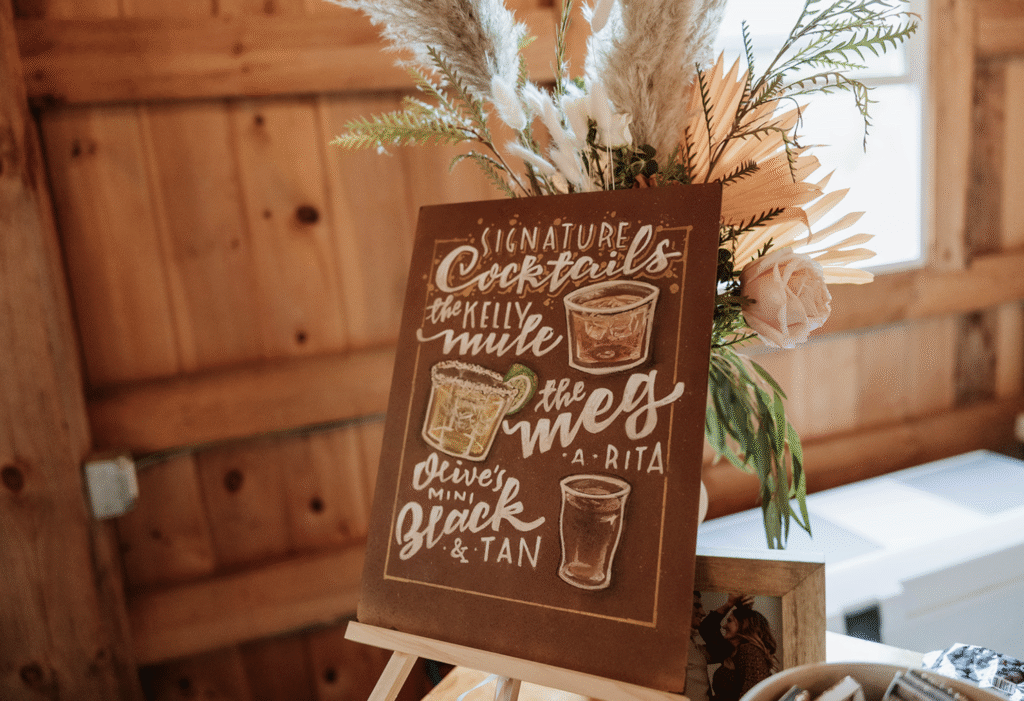 SIGNATURE
Cocktails
the KELLY
mule
the
meg
·A·RITA
Olive's
MINI
Black
·&·TAN